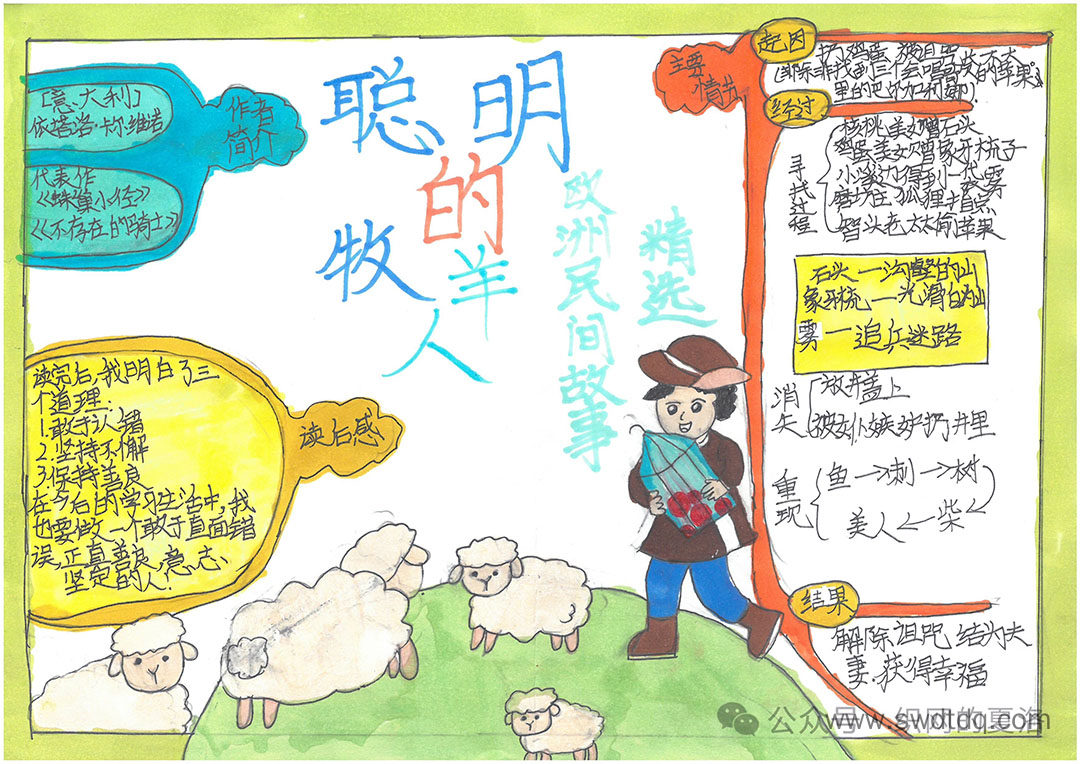 聪明
的
牧羊
人
欧洲民间故事
精选
作者
简介
[意大利]
依塔洛·卡尔维诺
代表作
《蛛巢小径》
《不存在的骑士》
读后感
读完后,我明白了三
个道理:
1.敢于认错
2.坚持不懈
3.保持善良
在今后的学习生活中,我
也要做一个敢于直面错
误,正直善良,意志、
坚定的人.
主要
情节
起因
扔鸡蛋
经过
寻找过程
核桃美女赠石头
鸡蛋美女赠象牙梳子
小家边得到一袋雾
磨坊 狐狸指点
智斗老太太偷苹果
石头一沟壑的山
象牙梳一光滑的山
雾一追兵迷路
消失
放井盖上
被女仆嫉妒扔井里
重现
鱼→刺→树
美人←柴
结果
解除诅咒 结为夫
妻.获得幸福
公众号
www.swdtdq.com